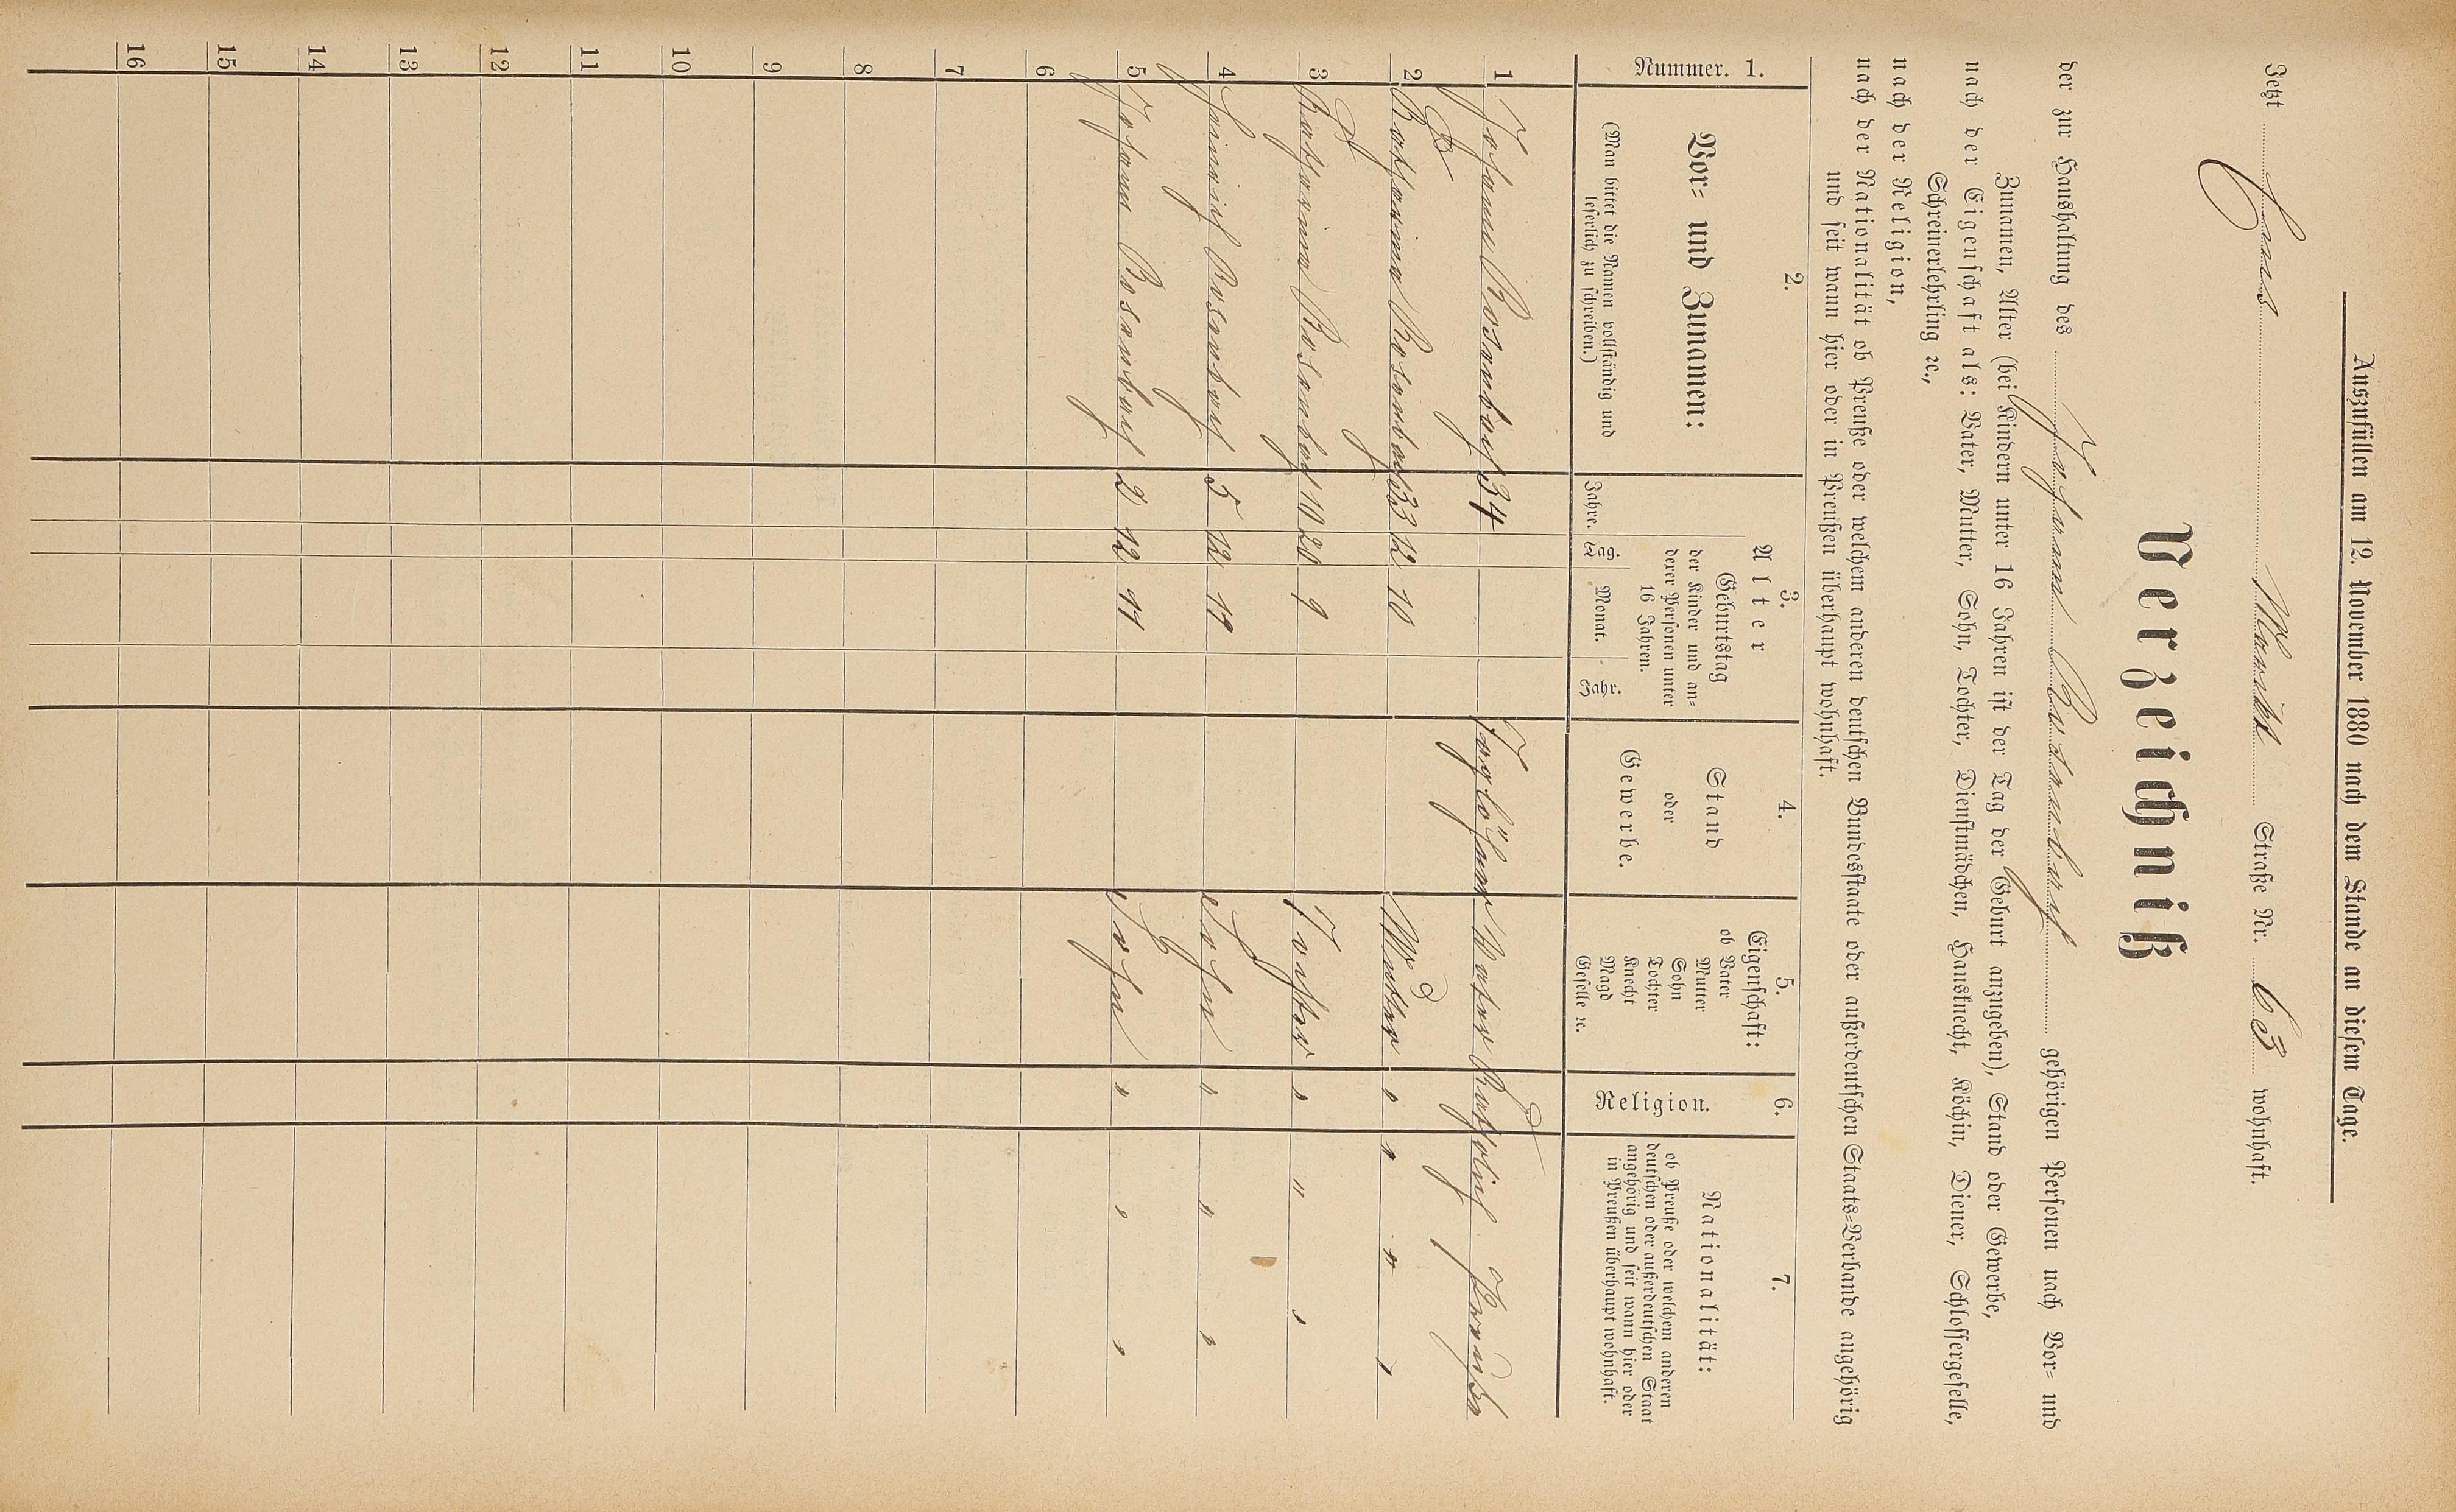 Auszufüllen am 12. November 1880 nach dem Stande an diesem Tage.
Jetzt Haus Straße Nr. 63 wohnhaft.
Verzeichniß
der zur Haushaltung des Johann gehörigen Personen nach Vor= und
Zunamen, Alter (bei Kindern unter 16 Jahren ist der Tag der Geburt anzugeben), Stand oder Gewerbe,
nach der Eigenschaft als: Vater, Mutter, Sohn, Tochter, Dienstmädchen, Hausknecht, Köchin, Diener, Schlossergeselle,
Schreinerlehrling ꝛc.,
nach der Religion,
nach der Nationalität ob Preuße oder welchem anderen deutschen Bundesstaate oder außerdeutschen Staats=Verbande angehörig
und seit wann hier oder in Preußen überhaupt wohnhaft.
Nummer. 1.
2.
Vor= und Zunamen:
(Man bittet die Namen vollständig und
leserlich zu schreiben.)
3.
Alter
Geburtstag
der Kinder und an=
derer Personen unter
16 Jahren.
Jahre. Tag. Monat. Jahr.
4.
Stand
oder
Gewerbe.
5.
Eigenschaft:
ob Vater
Mutter
Sohn
Tochter
Knecht
Magd
Geselle ꝛc.
6.
Religion.
7.
Nationalität:
ob Preuße oder welchem anderen
deutschen oder außerdeutschen Staat
angehörig und seit wann hier oder
in Preußen überhaupt wohnhaft.
1 Johann 34 Taglöhner Vater Katholisch Preuße
2 33 12 10 Mutter " " " "
3 Katharina 10 20 9 Tochter " " "
4 Heinrich 5 12 Sohn " " "
5 Johann 2 12 11 Sohn " " "
6
7
8
9
10
11
12
13
14
15
16